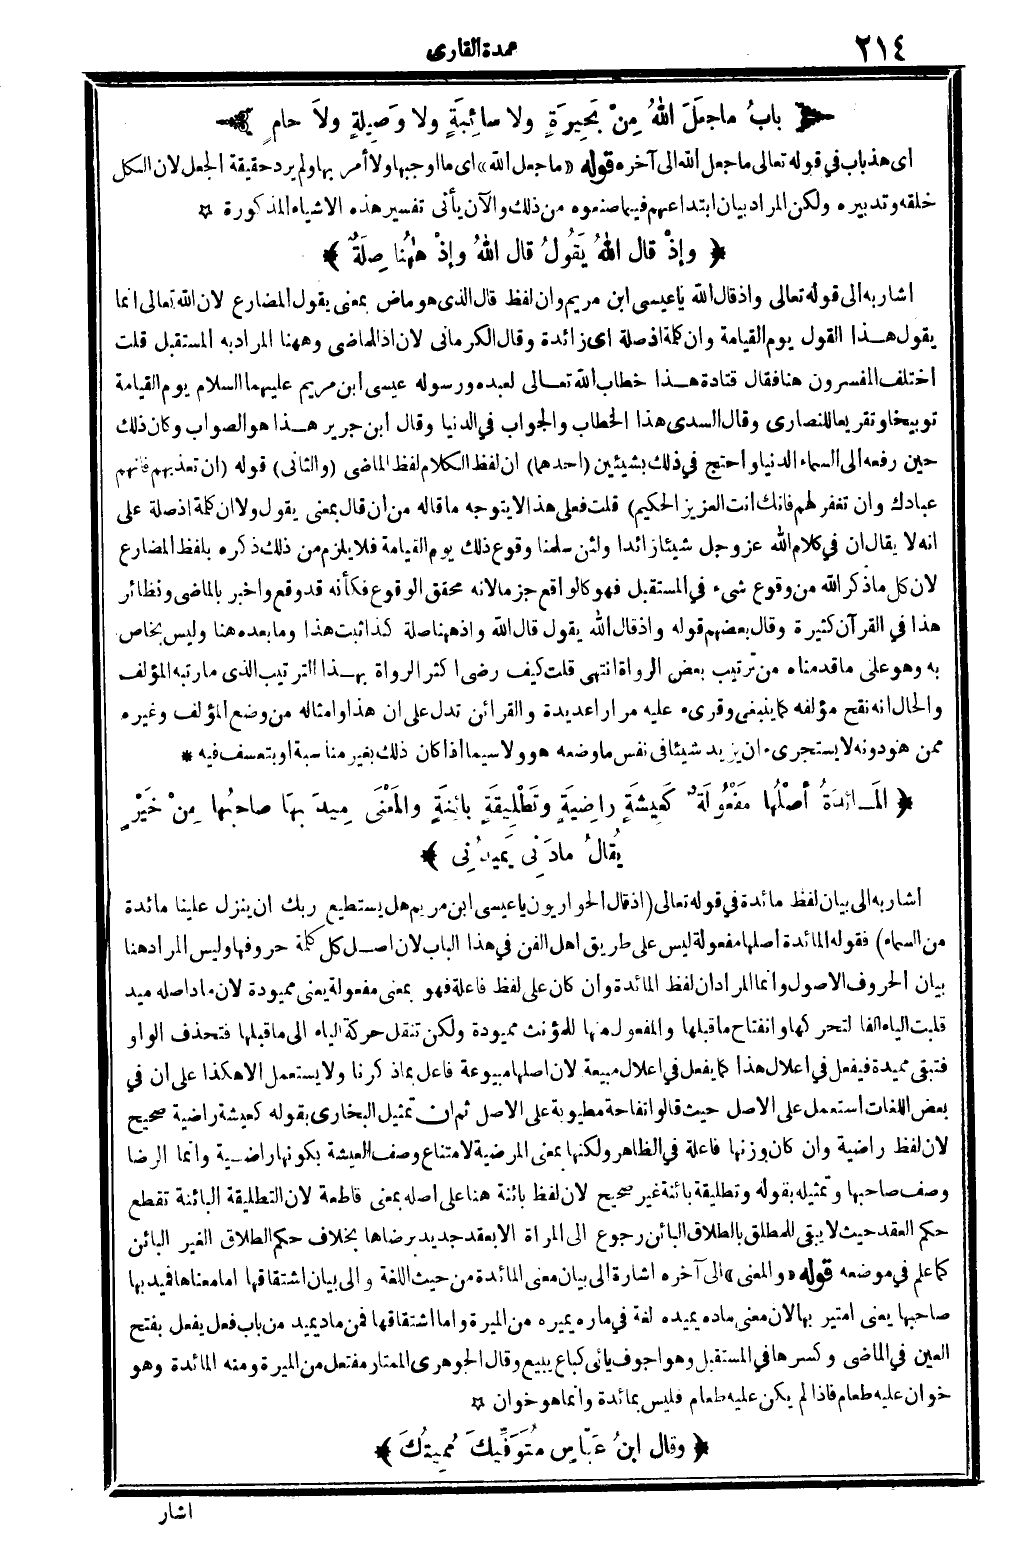 ٢١٤
عمدة القارى
﴿ بابُ ماجعَلَ اللهُ مِنْ بَحِيرَةٍ ولا سائِبَةٍ ولا وَصِيلةٍ ولاَ حامٍ ﴾
اى هذ باب فى قوله تعالى ماجعل الله الى آخره قوله «ماجعل الله» اى ما اوجبها ولا أمر بها ولم يرد حقيقة الجعل لان الكل
خلقه وتدبيره ولكن المراد بيان ابتداعهم فيما صنعوه من ذلك والآن يأتى تفسير هذه الاشياء المذكورة ☆
﴿ وإذْ قال اللهُ يَقُولُ قال اللهُ وإذْ هٰهُنا صِلَةٌ ﴾
اشار به الى قوله تعالى واذ قال الله ياعيسى ابن مريم وان لفظ قال الذى هو ماض بمعنى يقول المضارع لان الله تعالى انما
يقول هـذا القول يوم القيامة وان كلمة اذ صلة اى زائدة وقال الكرمانى لان اذ للماضى وههنا المراد به المستقبل قلت
اختلف المفسرون هنا فقال قتادة هـذا خطاب الله تعـالى لعبده ورسوله عيسى ابن مريم عليهما السلام يوم القيامة
توبيخا وتقريعا للنصارى وقال السدى هذا الخطاب والجواب فى الدنيا وقال ابن جرير هـذا هو الصواب وكان ذلك
حين رفعه الى السماء الدنيا واحتج فى ذلك بشيئين (احدهما) ان لفظ الكلام لفظ الماضى (والثانى) قوله (ان تعذبهم فانهم
عبادك وان تغفر لهم فانك انت العزيز الحكيم) قلت فعلى هذا لا يتوجه ما قاله من ان قال بمعنى يقول ولا ان كلمة اذ صلة على
انه لا يقال ان فى كلام الله عز وجل شيئا زائدا ولئن سلمنا وقوع ذلك يوم القيامة فلا يلزم من ذلك ذكره بلفظ المضارع
لان كل ما ذكر الله من وقوع شىء فى المستقبل فهو كالواقع جزما لانه محقق الوقوع فكأنه قد وقع واخبر بالماضى ونظائر
هذا فى القرآن كثيرة وقال بعضهم قوله واذ قال الله يقول قال الله واذ ههنا صلة كذا ثبت هذا وما بعده هنا وليس بخاص
به وهو على ما قدمناه من ترتيب بعض الرواة انتهى قلت كيف رضى اكثر الرواة بهـذا الترتيب الذى ما رتبه المؤلف
والحال انه نقح مؤلفه كما ينبغى وقرىء عليه مرارا عديدة والقرائن تدل على ان هذا وامثاله من وضع المؤلف وغيره
ممن هو دونه لا يستجرىء ان يزيد شيئا فى نفس ما وضعه هو ولا سيما اذا كان ذلك بغير مناسبة او بتعسف فيه *
﴿ المَـائِدَةُ أصْلُها مَفْعُولَةٌ كَعِيشَةٍ راضِيَةٍ وتَطْلِيقَةٍ بائِنَةٍ والمَعْنَى مِيدَ بِهَا صاحِبُها مِنْ خَيْرٍ
يُقالُ مادَنِى يَمِيدُنِى ﴾
اشار به الى بيان لفظ مائدة فى قوله تعالى (اذ قال الحواريون ياعيسى ابن مريم هل يستطيع ربك ان ينزل علينا مائدة
من السماء) فقوله المائدة اصلها مفعولة ليس على طريق اهل الفن فى هذا الباب لان اصـل كل كلمة حروفها وليس المراد هنا
بيان الحروف الاصول وانما المراد ان لفظ المائدة وان كان على لفظ فاعلة فهو بمعنى مفعولة يعنى مميودة لان ماد اصله ميد
قلبت الياء الفا لتحركها وانفتاح ما قبلها والمفعول منها للمؤنث مميودة ولكن تنقل حركة الياء الى ما قبلها فتحذف الواو
فتبقى مميدة فيفعل فى اعلال هذا كما يفعل فى اعلال مبيعة لان اصلها مبيوعة فاعل بما ذكرنا ولا يستعمل الا هكذا على ان فى
بعض اللغات استعمل على الاصل حيث قالوا تفاحة مطيوبة على الاصل ثم ان تمثيل البخارى بقوله كعيشة راضية صحيح
لان لفظ راضية وان كان وزنها فاعلة فى الظاهر ولكنها بمعنى المرضية لامتناع وصف العيشة بكونها راضـية وانما الرضا
وصف صاحبها وتمثيله بقوله وتطليقة بائنة غير صحيح لان لفظ بائنة هنا على اصله بمعنى قاطعة لان التطليقة البائنة تقطع
حكم العقد حيث لا يبقى للمطلق بالطلاق البائن رجوع الى المراة الا بعقد جديد برضاها بخلاف حكم الطلاق الغير البائن
كما علم فى موضعه قوله «والمعنى» الى آخره اشارة الى بيان معنى المائدة من حيث اللغة والى بيان اشتقاقها اما معناها فميد بها
صاحبها يعنى امتير بها لان معنى ماده يميده لغة فى ماره يميره من الميرة واما اشتقاقها فمن ماد يميد من باب فعل يفعل بفتح
العين فى الماضى وكسرها فى المستقبل وهو اجوف يائى كباع يبيع وقال الجوهرى الممتار مفتعل من الميرة ومنه المائدة وهو
خوان عليه طعام فاذا لم يكن عليه طعام فليس بمائدة وانما هو خوان ☆
﴿ وقال ابنُ عَبّاسٍ مُتَوَفِّيكَ مُمِيتُكَ ﴾
اشار